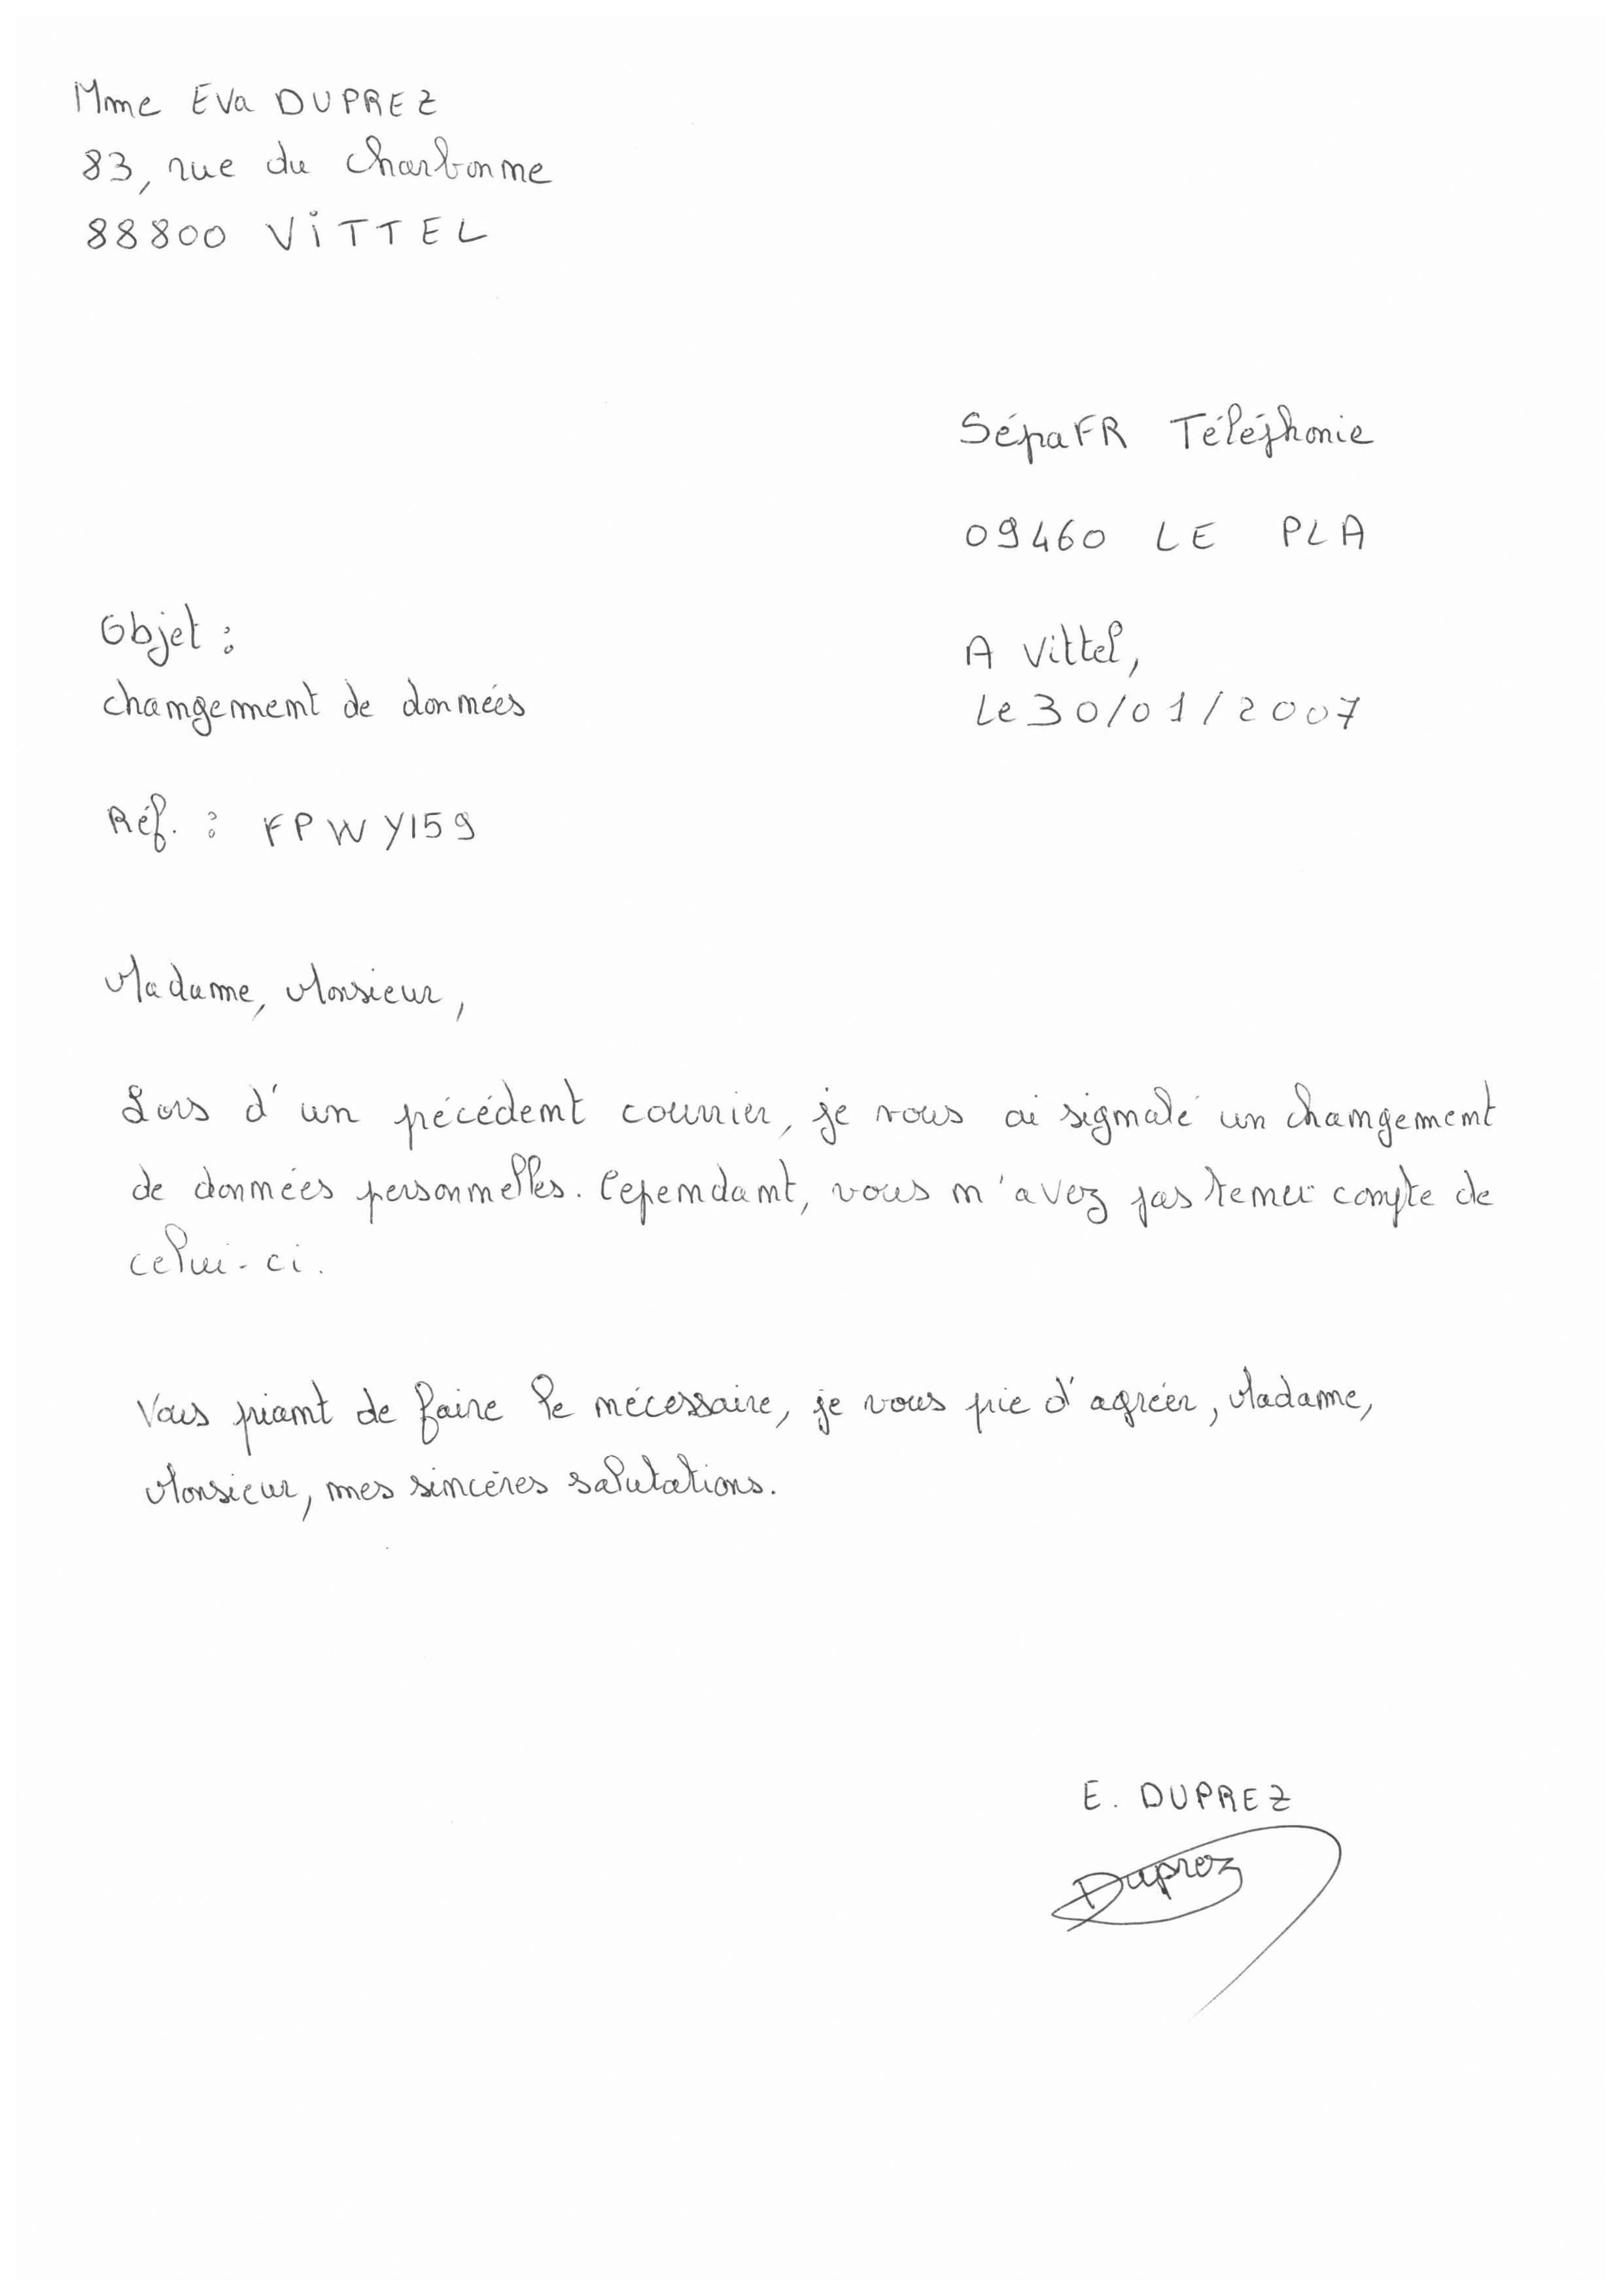 Mme Eva DUPREZ
83, rue du Charbonne
88800 VITTEL
SépaFR Téléphonie
09460 LE PLA
Objet :
changement de données
A Vittel,
Le 30/01/2007
Réf. : FPWYI59
Madame, Monsieur,
Lors d'un précédent courrier, je vous ai signalé un changement
de données personnelles. Cependant, vous n'avez pas tenu compte de
celui-ci.
Vous priant de faire le nécessaire, je vous prie d'agréer, Madame,
Monsieur, mes sincères salutations.
E. DUPREZ
Duprez